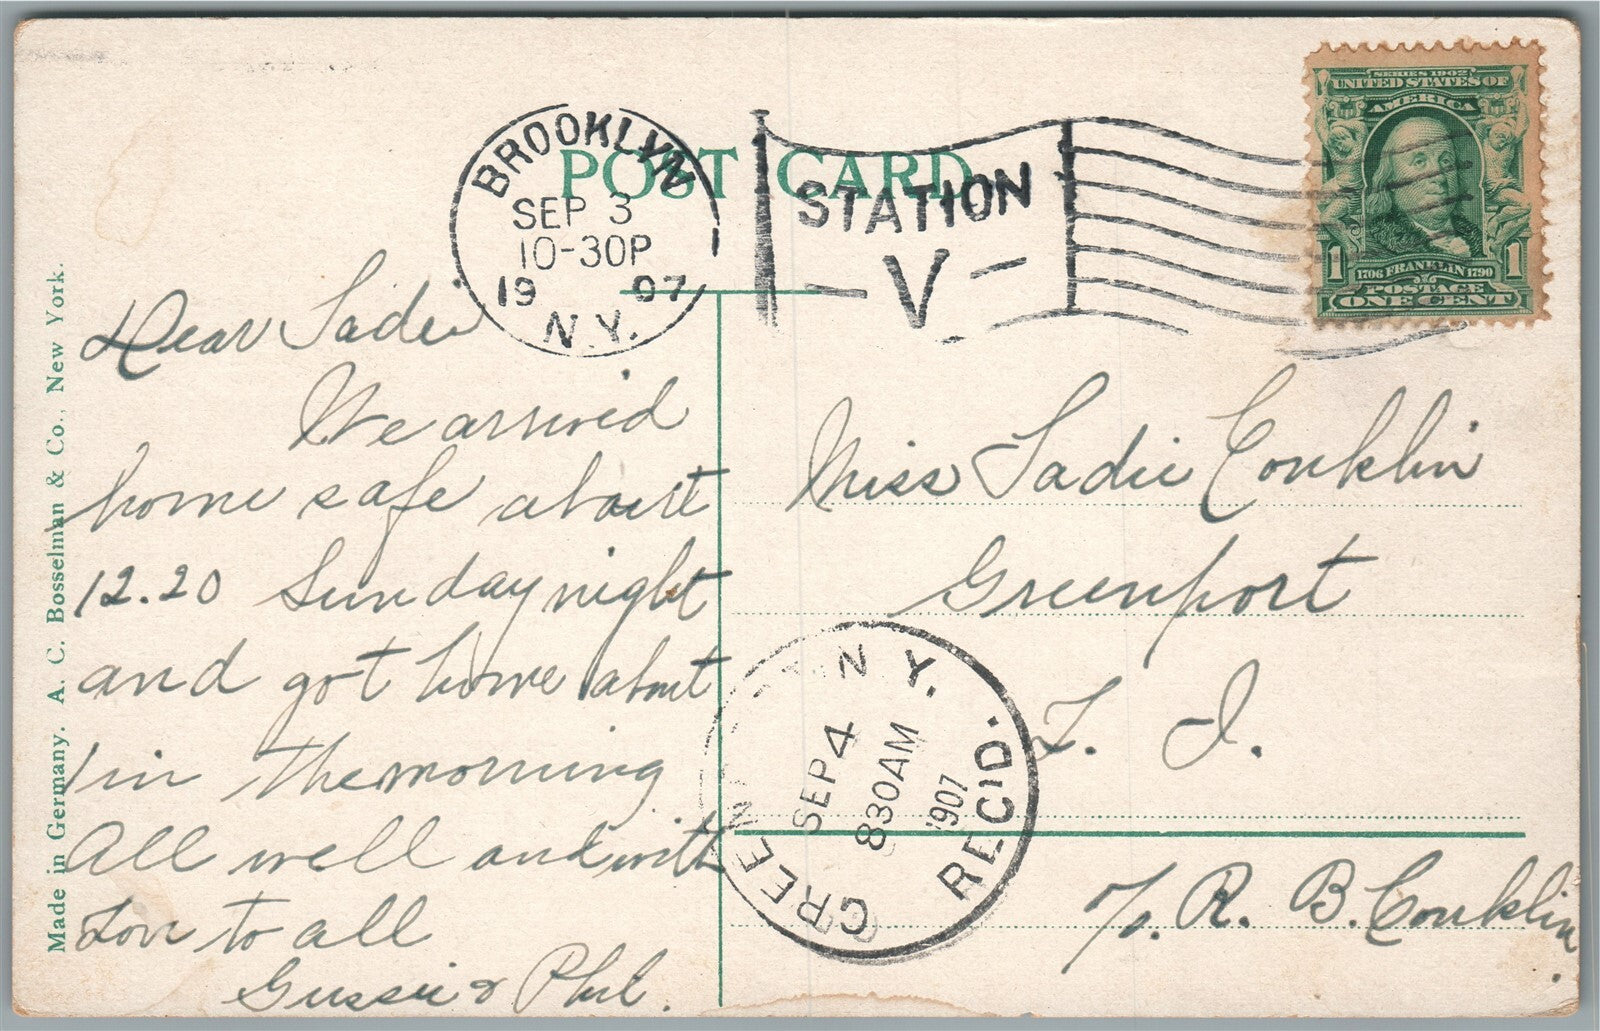 POST CARD
BROOKLYN
SEP 3
10-30P
19 07
N.Y.
STATION
V
SERIES 1902
UNITED STATES OF
AMERICA
1 1706 FRANKLIN 1790 1
POSTAGE
ONE CENT
Made in Germany. A. C. Bosselman & Co., New York.
Dear Sadie
We arrived
home safe about
12.20 Sunday night
and got home about
1 in the morning
All well and with
Love to all
Gussie & Phil.
Miss Sadie Conklin
Greenport
L. I.
c/o. R. B. Conklin.
GREEN N.Y.
SEP 4
830AM
1907
REC'D.